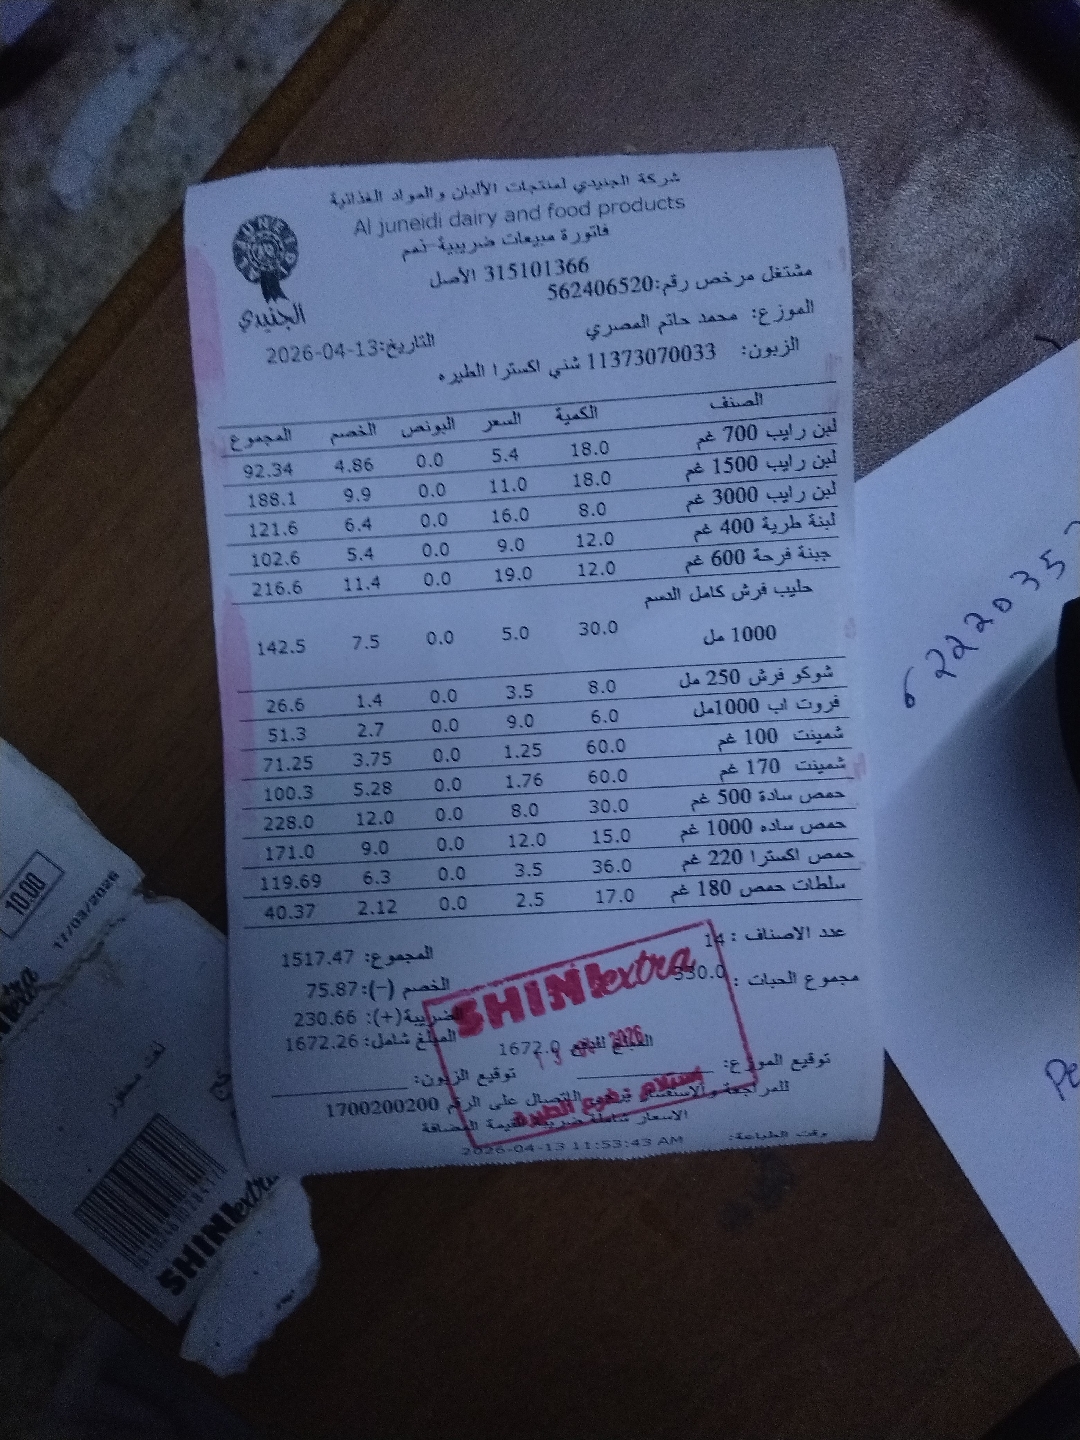 شركة الجنيدي لمنتجات الألبان والمواد الغذائية
Al juneidi dairy and food products
فاتورة مبيعات ضريبية-نمم
315101366 الأصل
الجنيدي
مشتغل مرخص رقم:562406520
الموزع: محمد حاتم المصري
التاريخ:2026-04-13
الزبون: 11373070033 شني اكسترا الطيره
الصنف الكمية السعر البونص الخصم المجموع
لبن رايب 700 غم 18.0 5.4 0.0 4.86 92.34
لبن رايب 1500 غم 18.0 11.0 0.0 9.9 188.1
لبن رايب 3000 غم 8.0 16.0 0.0 6.4 121.6
لبنة طرية 400 غم 12.0 9.0 0.0 5.4 102.6
جبنة فرحة 600 غم 12.0 19.0 0.0 11.4 216.6
حليب فرش كامل الدسم
1000 مل 30.0 5.0 0.0 7.5 142.5
شوكو فرش 250 مل 8.0 3.5 0.0 1.4 26.6
فروت اب 1000مل 6.0 9.0 0.0 2.7 51.3
شمينت 100 غم 60.0 1.25 0.0 3.75 71.25
شمينت 170 غم 60.0 1.76 0.0 5.28 100.3
حمص سادة 500 غم 30.0 8.0 0.0 12.0 228.0
حمص ساده 1000 غم 15.0 12.0 0.0 9.0 171.0
حمص اكسترا 220 غم 36.0 3.5 0.0 6.3 119.69
سلطات حمص 180 غم 17.0 2.5 0.0 2.12 40.37
عدد الاصناف : 14
المجموع: 1517.47
مجموع الحبات : 330.0
الخصم (-): 75.87
الضريبة(+): 230.66
المبلغ شامل: 1672.26
المبلغ للدفع 1672.0
توقيع الموزع:
توقيع الزبون:
للمراجعة والاستفسار الاتصال على الرقم 1700200200
الاسعار شاملة ضريبة القيمة المضافة
وقت الطباعة: 2026-04-13 11:53:43 AM
SHINI extra
2026
استلام الطيرة
10.00
17/03/2026
SHINI extra
6222035
Pe